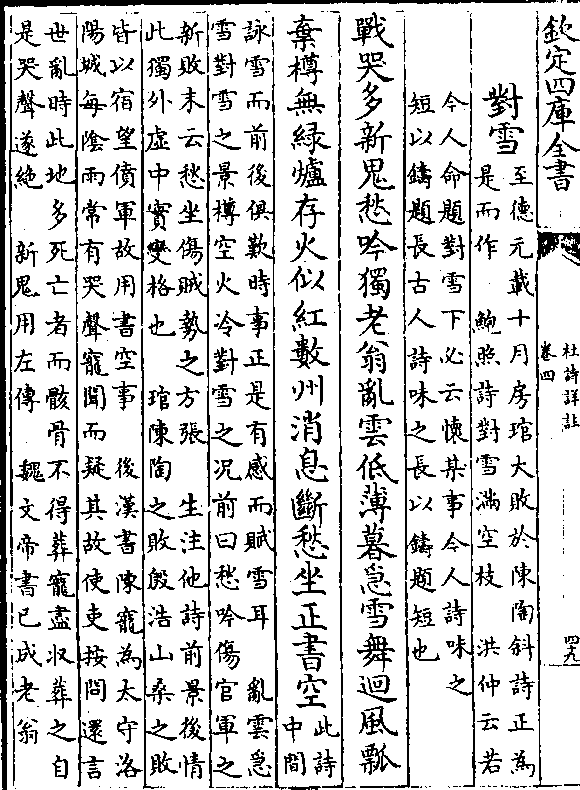 欽定四庫全書
杜詩詳註
卷四
四九
對雪
至德元載十月房琯大敗於陳陶斜詩正為
是而作 鮑照詩對雪滿空枝 洪仲云若
今人命題對雪下必云懷某事今人詩味之
短以鑄題長古人詩味之長以鑄題短也
戰哭多新鬼愁吟獨老翁亂雲低薄暮急雪舞迴風瓢
棄樽無綠爐存火似紅數州消息斷愁坐正書空
此詩
中間
詠雪而前後俱歎時事正是有感而賦雪耳 亂雲急
雪對雪之景樽空火冷對雪之况前曰愁吟傷官軍之
新敗末云愁坐傷賊勢之方張 生注他詩前景後情
此獨外虛中實變格也 琯陳陶之敗殷浩山桑之敗
皆以宿望僨軍故用書空事 後漢書陳寵為太守洛
陽城每陰雨常有哭聲寵聞而疑其故使吏按問還言
世亂時此地多死亡者而骸骨不得葬寵盡収葬之自
是哭聲遂絕 新鬼用左傳 魏文帝書已成老翁